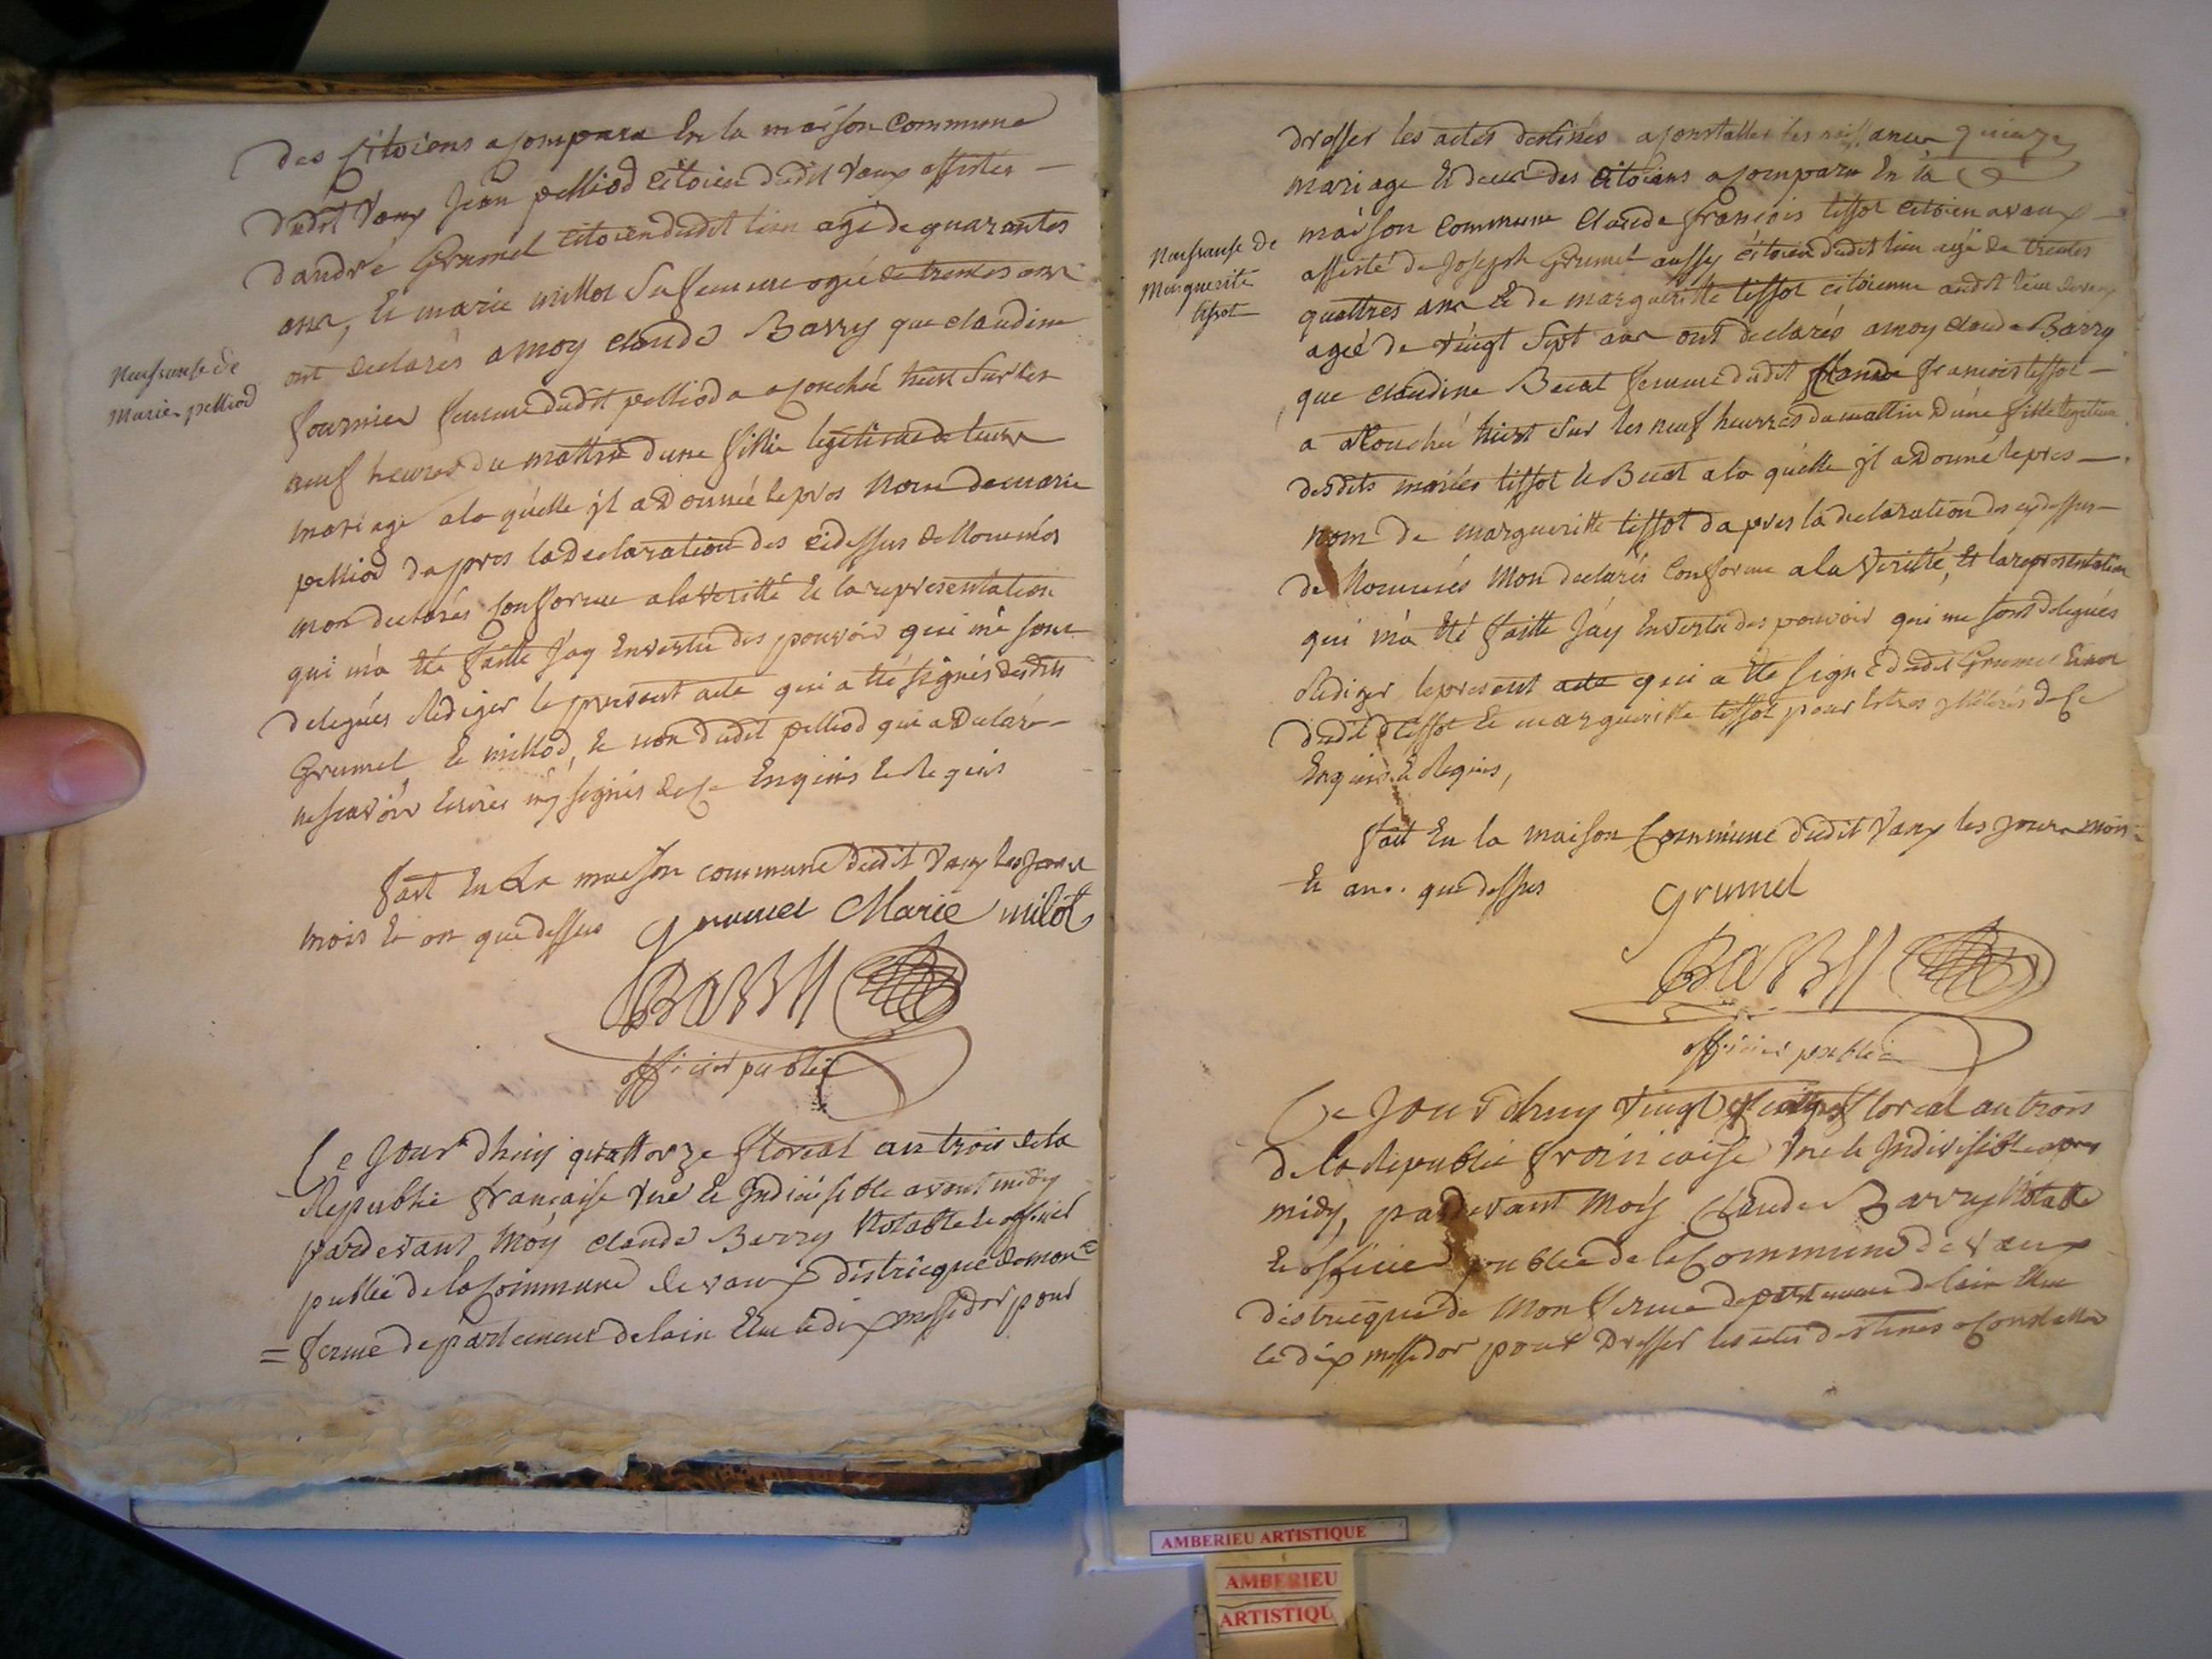 des Citoiens a comparu En la maison Commune
dudit Vaux Jean pelliod Citoien dudit Vaux assistés
d'andré Grumel Citoien dudit lieu agé de quarantes
ans, Et marie millot Sa femme agée de trentes ans
ont declarés a moy claude Barry que claudine
Naissansse de
Marie pelliod
fournier femme dudit pelliod a acouchée hiert Sur les
neuf heures du mattin d'une fillie legitime de leurs
mariage a la quelle jl a Donnée le pres Nom de marie
pelliod d'apres la Declaration des Cidessus deNommés
mon declarés Conforme a la veritté Et la representation
qui m'a Eté faitte J'ay En vertu des pouvoir qui me sont
delegués Rediger le present acte qui a Eté signés desdits
Grumel Et milliod, Et non dudit pelliod qui a Declaré
ne scavoir Ecrire ny signés de Ce Enquis Et Requis
fait En La maison commune dudit Vaux les Jours
mois Et an que dessus Grumel Marie milot
Barry
officier public
Ce Jour d'huy quattorze floreal an trois de la
Republic française Vne Et Jndivisible avant midy
pardevant Moy claude Barry Notable Et officier
public de la Commune de vaux districque de mont
= ferme departement de l'ain Elue le dix messidor pour
dresser les actes destinés a Constatter les naissances
mariage Et deces des Citoiens a comparu En la
Naissansse de
Marguerite
tissot
maison Commune Claude françois tissot Citoien a vaux
assisté de Joseph Grumel aussy Citoien dudit lieu agé de trentes
quattres ans Et de margueritte tissot citoienne audit lieu
ageé de vingt Sept ans ont declarés a moy claude Barry
que claudine Beeat femme dudit Claude francois tissot
a acouchée hiert Sur les neuf heurres du mattin D'une fille legitime
desdits mariés tissot Et Beeat a la quelle jl a Donné le pres
nom de margueritte tissot d'apres la declaration des cy dessus
de Nommés Mon declarés Conforme a la Veritté, Et la representation
qui m'a Eté faitte J'ay En vertu des pouvoir qui me sont delegués
Rediger le present acte qui a Eté signé dudit Grumel Et non
dudit tissot Et margueritte tissot pour de Ce
Enquis Et Requis,
fait En la maison Commune dudit Vaux les jours mois
Et an. que dessus Grumel
Barry
officier public
Ce Jour d'huy Vingt floreal an trois
de la Republic francaise Vne Et Jndivisible apres
midy, pardevant Moy Claude Barry Notable
Et officier publec de la Commune de vaux
districque de Mon ferme departement de l'ain Elue
le dix messidor pour Dresser les actes destinés a Constatter
AMBERIEU ARTISTIQUE
AMBERIEU
ARTISTIQU